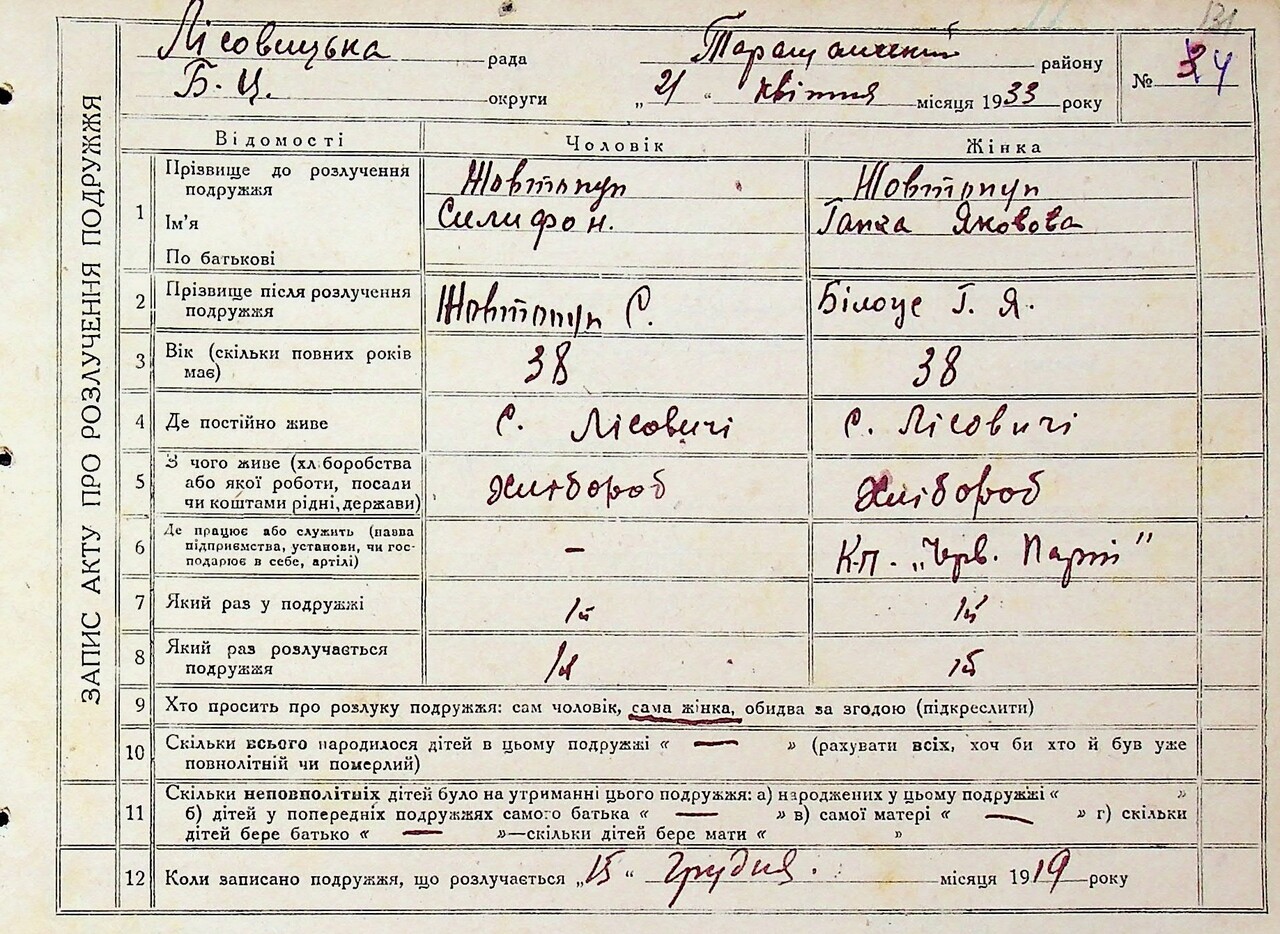 131
Лісовицька рада Таращанський району
Б. Ц. округи „21“ квітня місяця 1933 року
№ 4
ЗАПИС АКТУ ПРО РОЗЛУЧЕННЯ ПОДРУЖЖЯ
Відомості Чоловік Жінка
1 Прізвище до розлучення подружжя Жовтопуп Жовтопуп
Ім’я Силифон. Ганна Яковова
По батькові
2 Прізвище після розлучення Жовтопуп С. Білоус Г. Я.
подружжя
3 Вік (скільки повних років 38 38
має)
4 Де постійно живе С. Лісовичі С. Лісовичі
5 З чого живе (хл.боробства
або якої роботи, посади Хлібороб Хлібороб
чи коштами рідні, держави)
6 Де працює або служить (назва
підприємства, установи, чи гос- — К-п. „Черв. Парт”
подарює в себе, артілі)
7 Який раз у подружжі 1й 1й
8 Який раз розлучається 1й 1й
подружжя
9 Хто просить про розлуку подружжя: сам чоловік, сама жінка, обидва за згодою (підкреслити)
10 Скільки всього народилося дітей в цьому подружжі « — » (рахувати всіх, хоч би хто й був уже
повнолітній чи померлий)
11 Скільки неповполітніх дітей було на утриманні цього подружжя: а) народжених у цьому подружжі « »
б) дітей у попередніх подружжях самого батька « — » в) самої матері « — » г) скільки
дітей бере батько « — »—скільки дітей бере мати « »
12 Коли записано подружжя, що розлучається „15“ грудня. місяця 1919 року